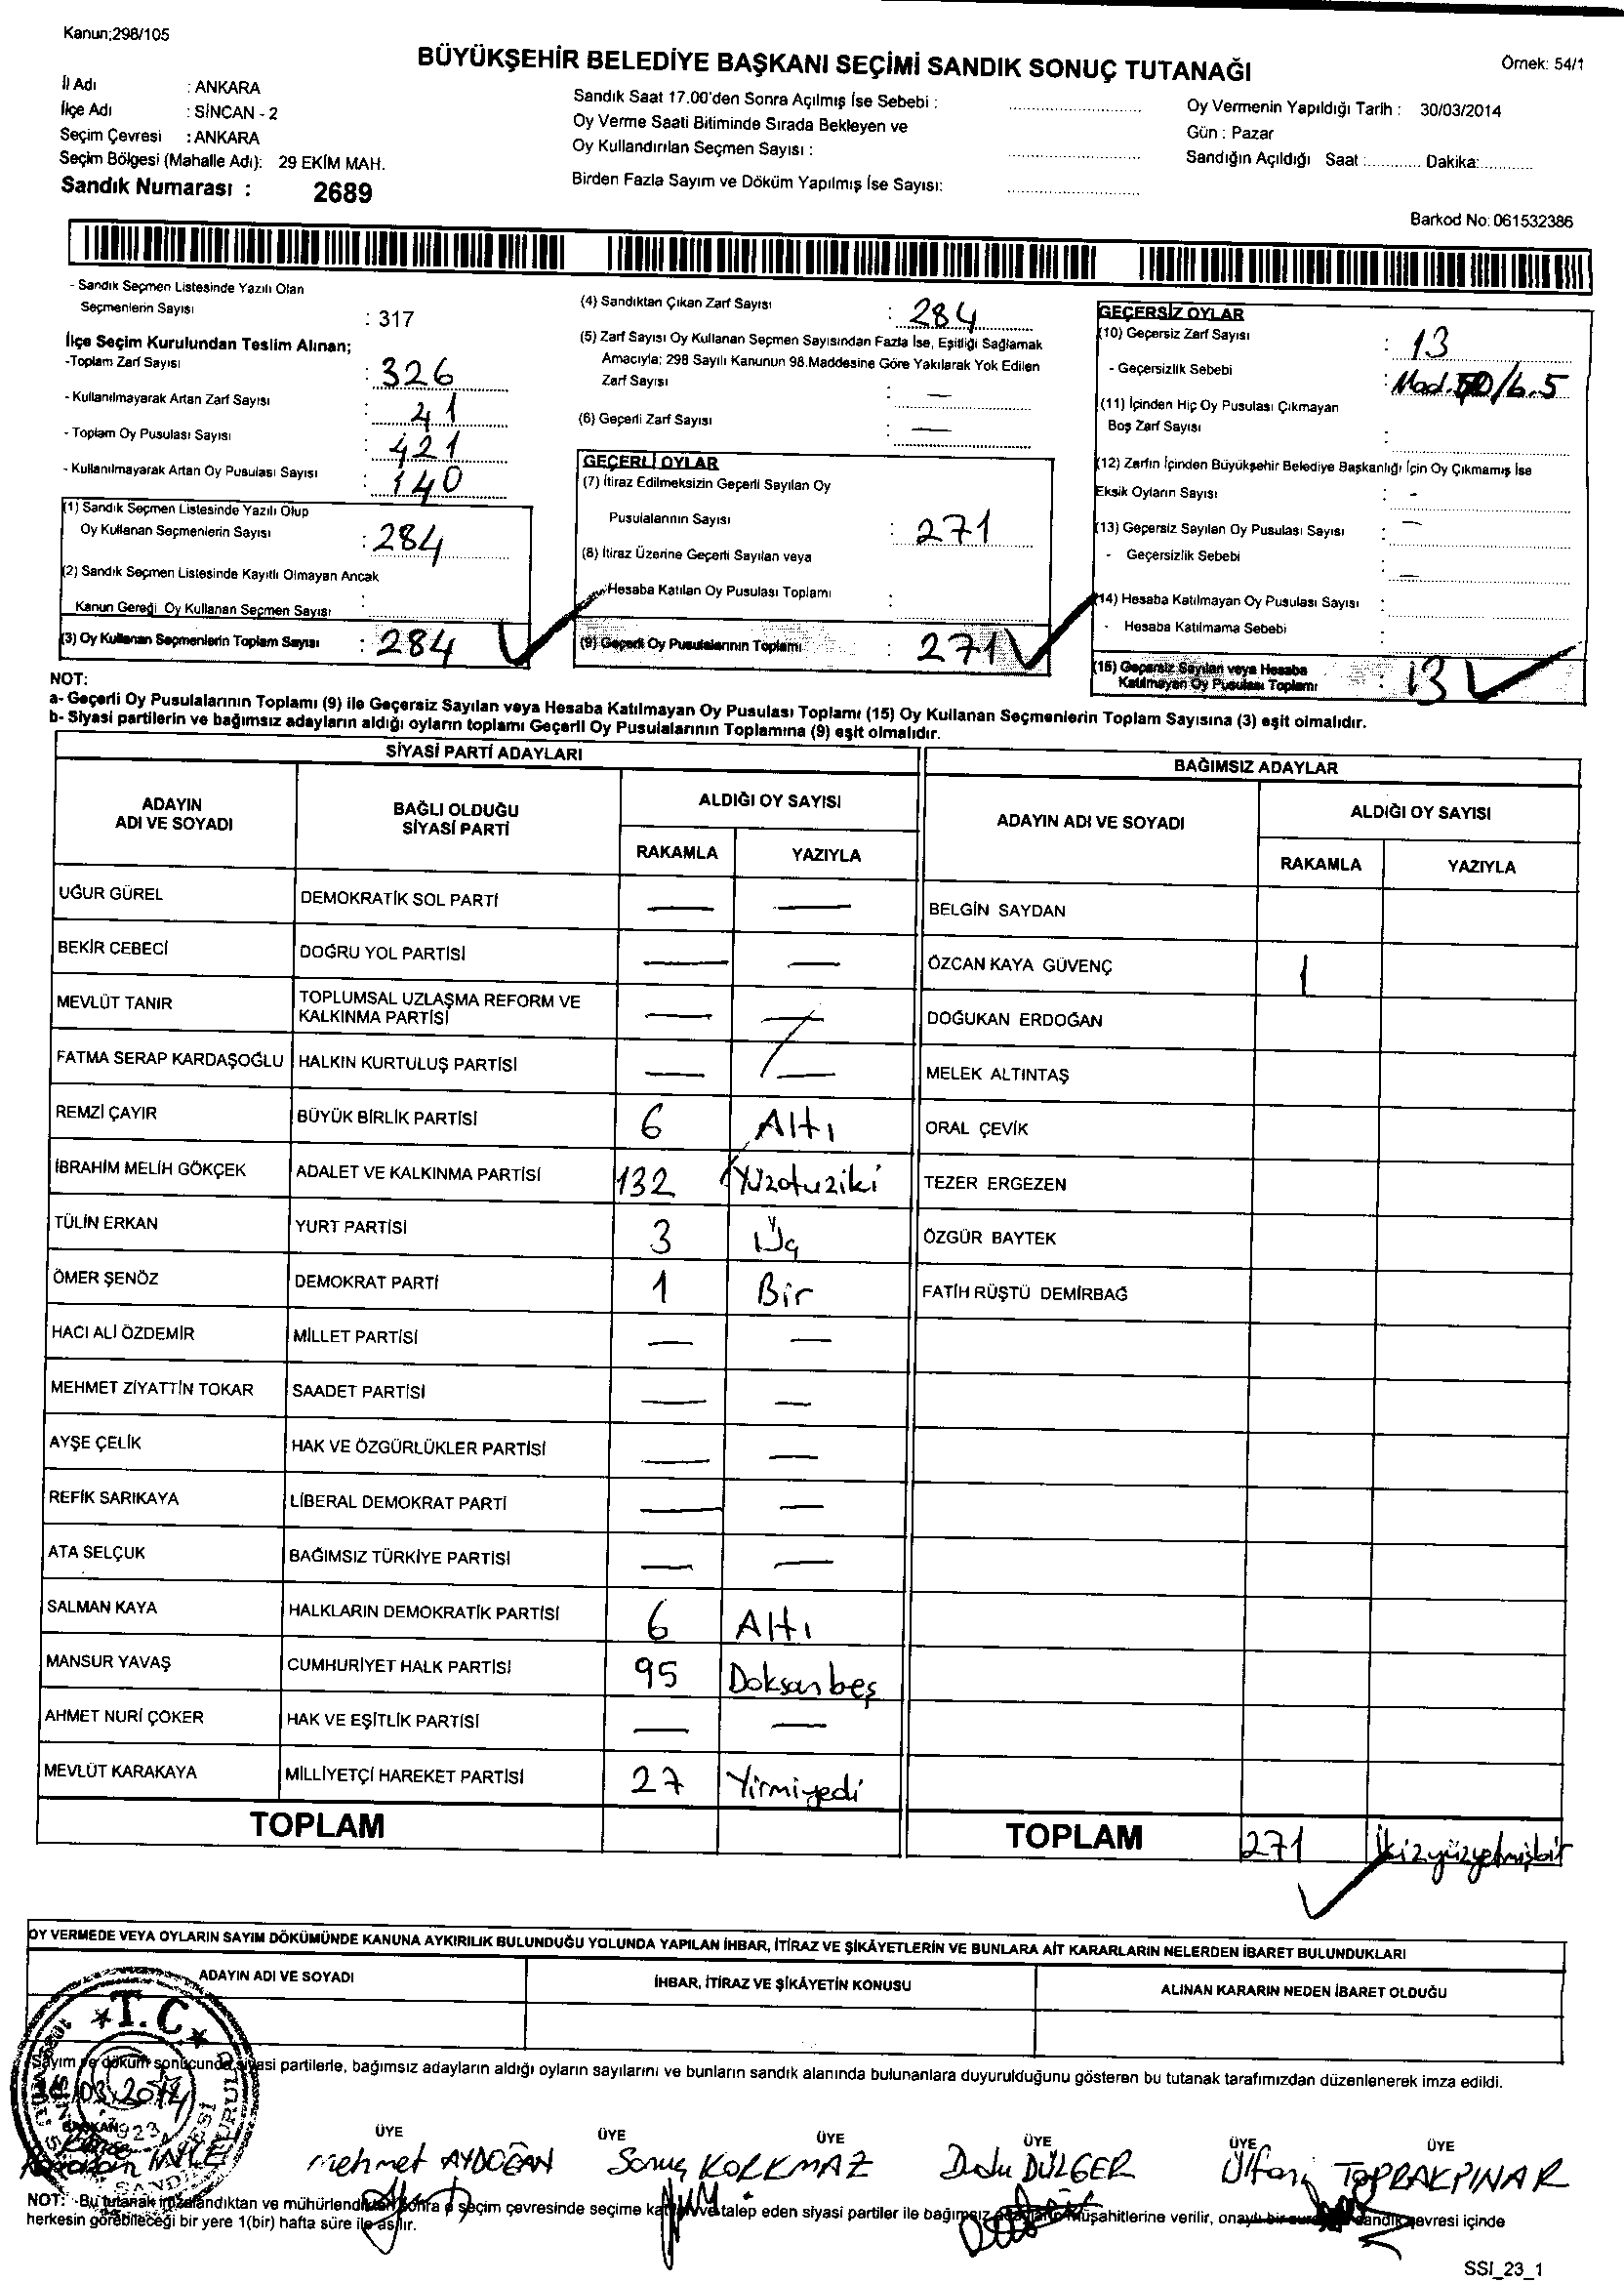 Kanun;298/105
BÜYÜKŞEHİR BELEDİYE BAŞKANI SEÇİMİ SANDIK SONUÇ TUTANAĞI
Örnek: 54/1
İl Adı : ANKARA
İlçe Adı : SİNCAN - 2
Seçim Çevresi : ANKARA
Seçim Bölgesi (Mahalle Adı): 29 EKİM MAH.
Sandık Numarası : 2689
Sandık Saat 17.00'den Sonra Açılmış İse Sebebi :
Oy Verme Saati Bitiminde Sırada Bekleyen ve
Oy Kullandırılan Seçmen Sayısı :
Birden Fazla Sayım ve Döküm Yapılmış İse Sayısı:
Oy Vermenin Yapıldığı Tarih : 30/03/2014
Gün : Pazar
Sandığın Açıldığı Saat :............ Dakika:............
Barkod No: 061532386
- Sandık Seçmen Listesinde Yazılı Olan
Seçmenlerin Sayısı : 317
İlçe Seçim Kurulundan Teslim Alınan;
-Toplam Zarf Sayısı : 326
- Kullanılmayarak Artan Zarf Sayısı : 41
- Toplam Oy Pusulası Sayısı : 421
- Kullanılmayarak Artan Oy Pusulası Sayısı : 140
(1) Sandık Seçmen Listesinde Yazılı Olup
Oy Kullanan Seçmenlerin Sayısı : 284
(2) Sandık Seçmen Listesinde Kayıtlı Olmayan Ancak
Kanun Gereği Oy Kullanan Seçmen Sayısı :
(3) Oy Kullanan Seçmenlerin Toplam Sayısı : 284
(4) Sandıktan Çıkan Zarf Sayısı : 284
(5) Zarf Sayısı Oy Kullanan Seçmen Sayısından Fazla İse, Eşitliği Sağlamak
Amacıyla; 298 Sayılı Kanunun 98.Maddesine Göre Yakılarak Yok Edilen
Zarf Sayısı : —
(6) Geçerli Zarf Sayısı : —
GEÇERLİ OYLAR
(7) İtiraz Edilmeksizin Geçerli Sayılan Oy
Pusulalarının Sayısı : 271
(8) İtiraz Üzerine Geçerli Sayılan veya
Hesaba Katılan Oy Pusulası Toplamı :
(9) Geçerli Oy Pusulalarının Toplamı : 271
GEÇERSİZ OYLAR
(10) Geçersiz Zarf Sayısı : 13
- Geçersizlik Sebebi : Mad. /6.5
(11) İçinden Hiç Oy Pusulası Çıkmayan
Boş Zarf Sayısı :
(12) Zarfın İçinden Büyükşehir Belediye Başkanlığı İçin Oy Çıkmamış İse
Eksik Oyların Sayısı : -
(13) Geçersiz Sayılan Oy Pusulası Sayısı : —
- Geçersizlik Sebebi : —
(14) Hesaba Katılmayan Oy Pusulası Sayısı :
- Hesaba Katılmama Sebebi :
(15) Geçersiz Sayılan veya Hesaba
Katılmayan Oy Pusulası Toplamı : 13
NOT:
a- Geçerli Oy Pusulalarının Toplamı (9) ile Geçersiz Sayılan veya Hesaba Katılmayan Oy Pusulası Toplamı (15) Oy Kullanan Seçmenlerin Toplam Sayısına (3) eşit olmalıdır.
b- Siyasi partilerin ve bağımsız adayların aldığı oyların toplamı Geçerli Oy Pusulalarının Toplamına (9) eşit olmalıdır.
SİYASİ PARTİ ADAYLARI
ADAYIN ADI VE SOYADI
BAĞLI OLDUĞU SİYASİ PARTİ
ALDIĞI OY SAYISI
RAKAMLA YAZIYLA
UĞUR GÜREL DEMOKRATİK SOL PARTİ — —
BEKİR CEBECİ DOĞRU YOL PARTİSİ — —
MEVLÜT TANIR TOPLUMSAL UZLAŞMA REFORM VE KALKINMA PARTİSİ — —
FATMA SERAP KARDAŞOĞLU HALKIN KURTULUŞ PARTİSİ — —
REMZİ ÇAYIR BÜYÜK BİRLİK PARTİSİ 6 Altı
İBRAHİM MELİH GÖKÇEK ADALET VE KALKINMA PARTİSİ 132 Yüzotuziki
TÜLİN ERKAN YURT PARTİSİ 3 Üç
ÖMER ŞENÖZ DEMOKRAT PARTİ 1 Bir
HACI ALİ ÖZDEMİR MİLLET PARTİSİ — —
MEHMET ZİYATTİN TOKAR SAADET PARTİSİ — —
AYŞE ÇELİK HAK VE ÖZGÜRLÜKLER PARTİSİ — —
REFİK SARIKAYA LİBERAL DEMOKRAT PARTİ — —
ATA SELÇUK BAĞIMSIZ TÜRKİYE PARTİSİ — —
SALMAN KAYA HALKLARIN DEMOKRATİK PARTİSİ 6 Altı
MANSUR YAVAŞ CUMHURİYET HALK PARTİSİ 95 Doksanbeş
AHMET NURİ ÇOKER HAK VE EŞİTLİK PARTİSİ — —
MEVLÜT KARAKAYA MİLLİYETÇİ HAREKET PARTİSİ 27 Yirmiyedi
TOPLAM
BAĞIMSIZ ADAYLAR
ADAYIN ADI VE SOYADI
ALDIĞI OY SAYISI
RAKAMLA YAZIYLA
BELGİN SAYDAN
ÖZCAN KAYA GÜVENÇ 1
DOĞUKAN ERDOĞAN
MELEK ALTINTAŞ
ORAL ÇEVİK
TEZER ERGEZEN
ÖZGÜR BAYTEK
FATİH RÜŞTÜ DEMİRBAĞ
TOPLAM 271 İkizyüzyetmişbir
OY VERMEDE VEYA OYLARIN SAYIM DÖKÜMÜNDE KANUNA AYKIRILIK BULUNDUĞU YOLUNDA YAPILAN İHBAR, İTİRAZ VE ŞİKÂYETLERİN VE BUNLARA AİT KARARLARIN NELERDEN İBARET BULUNDUKLARI
ADAYIN ADI VE SOYADI
İHBAR, İTİRAZ VE ŞİKÂYETİN KONUSU
ALINAN KARARIN NEDEN İBARET OLDUĞU
T.C.
Sayım ve döküm sonucunda, siyasi partilerle, bağımsız adayların aldığı oyların sayılarını ve bunların sandık alanında bulunanlara duyurulduğunu gösteren bu tutanak tarafımızdan düzenlenerek imza edildi.
30/03/2014
BAŞKAN ÜYE ÜYE ÜYE ÜYE ÜYE ÜYE
Mehmet AYDOĞAN Sonuç KORKMAZ Dudu DÜLGER Ülfani TOPRAKPINAR
NOT: -Bu tutanak imzalandıktan ve mühürlendikten sonra o seçim çevresinde seçime katılan ve talep eden siyasi partiler ile bağımsız adayların müşahitlerine verilir, onaylı bir sureti sandık çevresi içinde
herkesin görebileceği bir yere 1(bir) hafta süre ile asılır.
SSI_23_1